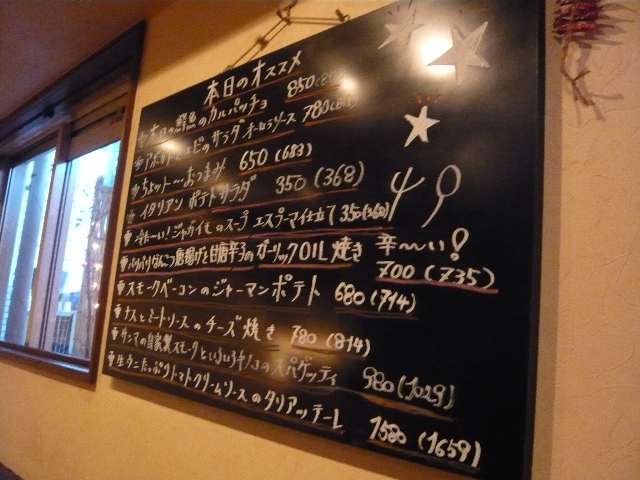 本日のオススメ
本日の鮮魚のカルパッチョ 850
アボカドとエビのサラダ オーロラソース 780
ちょットー…おつまみ 650(683)
イタリアン ポテトサラダ 350(368)
冷た〜い!ジャガイモのスープ エスプーマ仕立て 350(368)
パリパリなんこつ唐揚げと甘唐辛子のガーリックOIL焼き 辛〜い!
700(735)
スモークベーコンのジャーマンポテト 680(714)
ナスとミートソースのチーズ焼き 780(814)
サンマの自家製スモークといろいろキノコのスパゲッティ 980(1029)
生ウニたっぷりトマトクリームソースのタリアッテーレ 1580(1659)